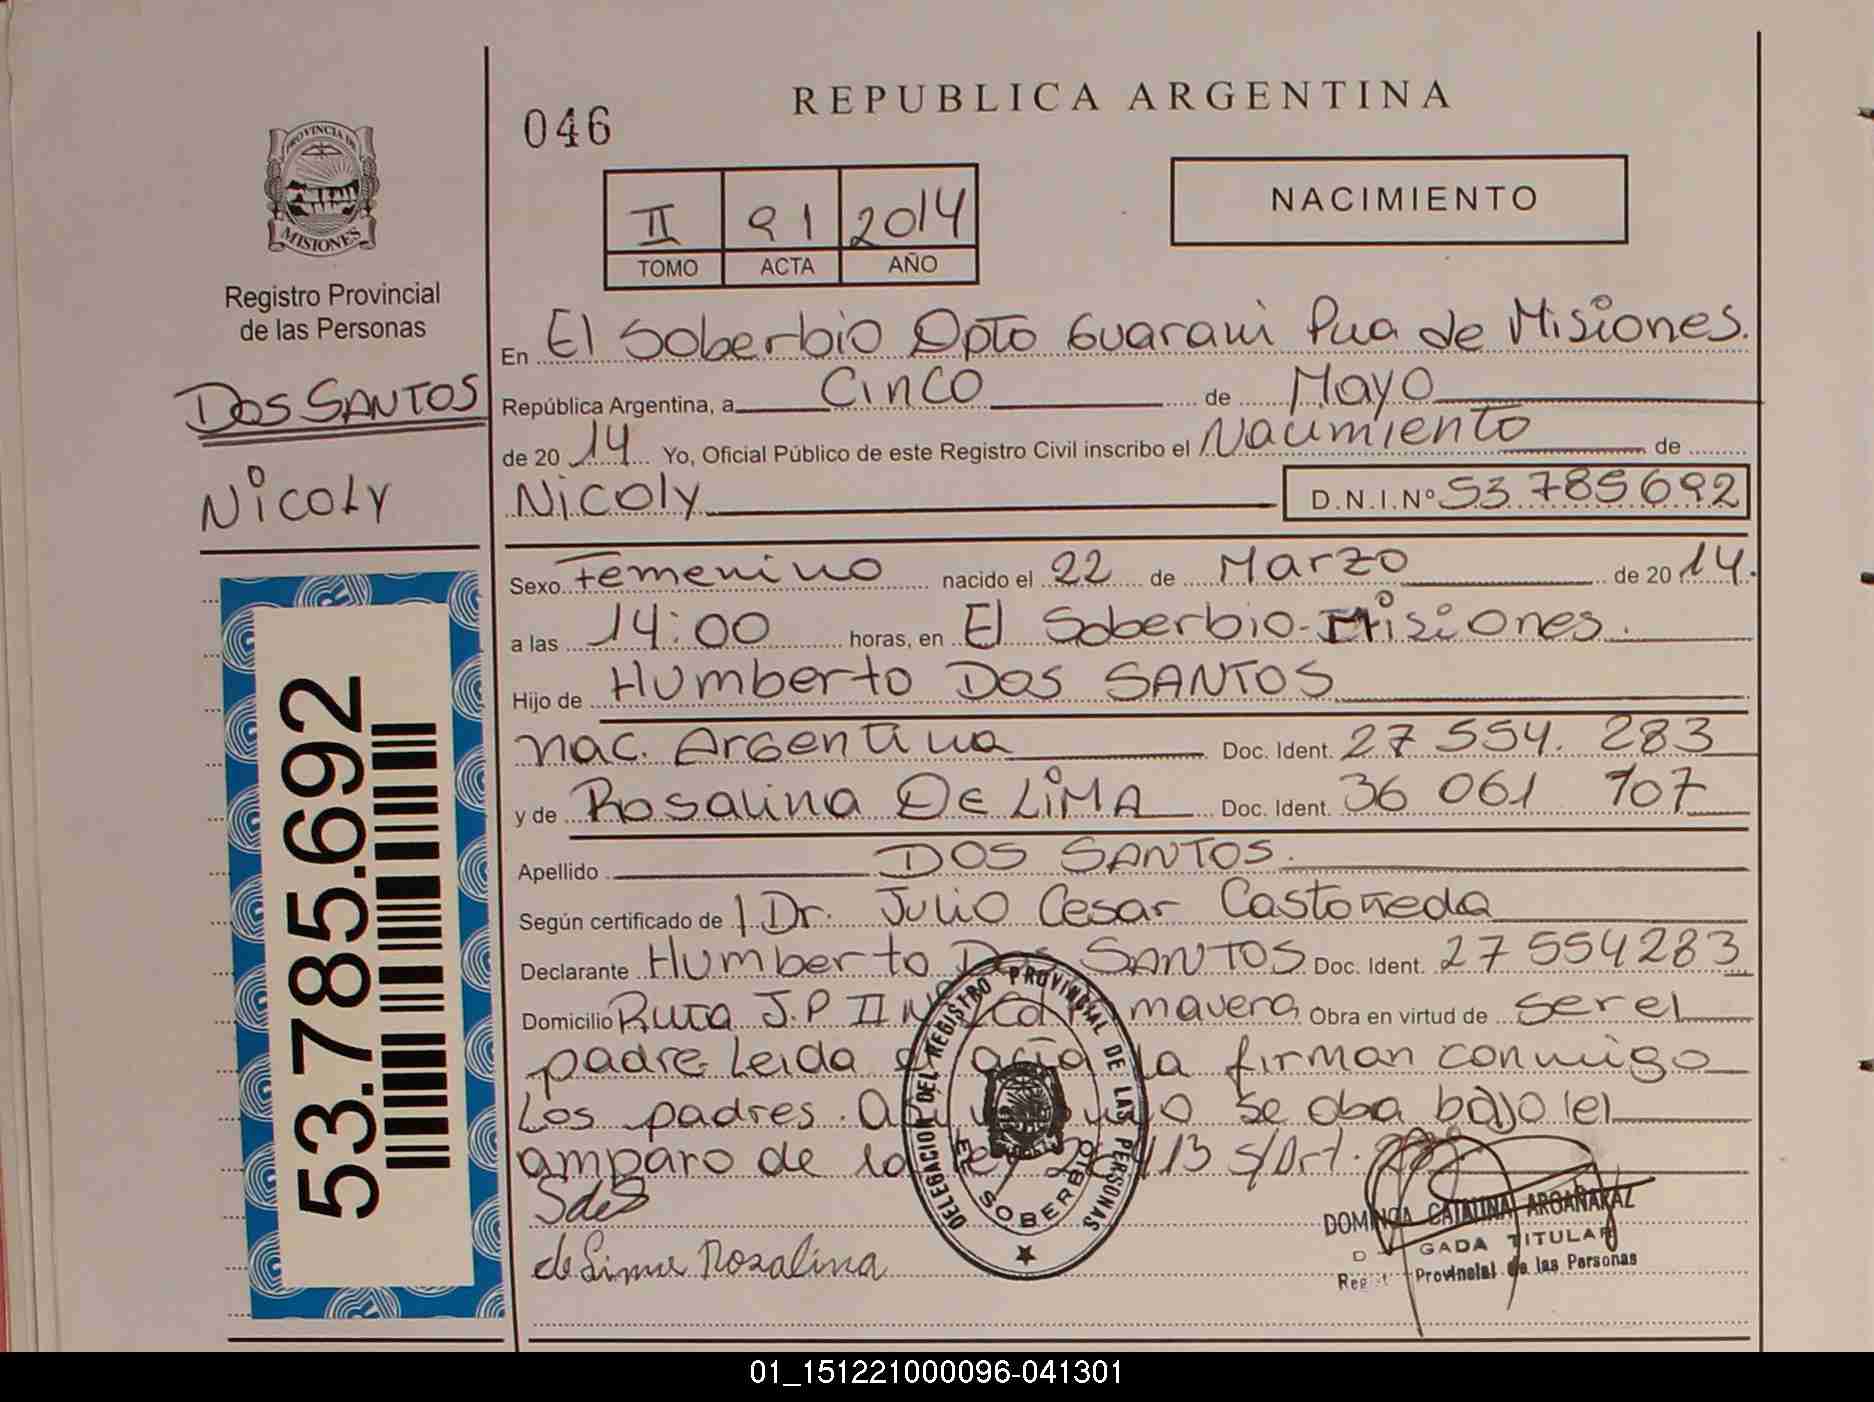 046
REPUBLICA ARGENTINA
PROVINCIA DE
MISIONES
Registro Provincial
de las Personas
DOS SANTOS
NICOLY
II 91 2014
TOMO ACTA AÑO
NACIMIENTO
En El Soberbio Dpto Guarani Pcia de Misiones.
República Argentina, a Cinco de Mayo
de 2014 Yo, Oficial Público de este Registro Civil inscribo el Nacimiento de
Nicoly D.N.I.Nº 53.785692
Sexo Femenino nacido el 22 de Marzo de 2014.
a las 14:00 horas, en El Soberbio-Misiones.
Hijo de Humberto Dos SANTOS
nac. Argentina Doc. Ident. 27 554. 283
y de Rosalina DE LIMA Doc. Ident. 36 061 107
Apellido DOS SANTOS.
Según certificado de Dr. Julio Cesar Castañeda
Declarante Humberto Dos SANTOS Doc. Ident. 27 554283
Domicilio Ruta J.P II Obra en virtud de ser el
padre. Leida el acta la firman conmigo
Los padres. se oba bajo el
amparo de la Ley 26413 s/Art.
de Lima Rosalina
DELEGACION DEL REGISTRO PROVINCIAL DE LAS PERSONAS
EL SOBERBIO
DOMINGA CATALINA ARGAÑARAZ
GADA TITULAR
Provincial de las Personas
53.785.692
01_151221000096-041301